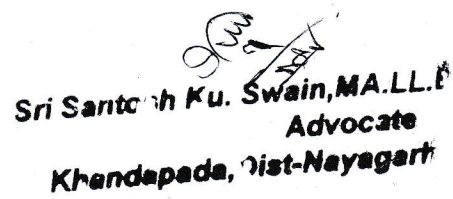 Sri Santosh Ku. Swain,MA.LL.B
Advocate
Khandapada, Dist-Nayagarh